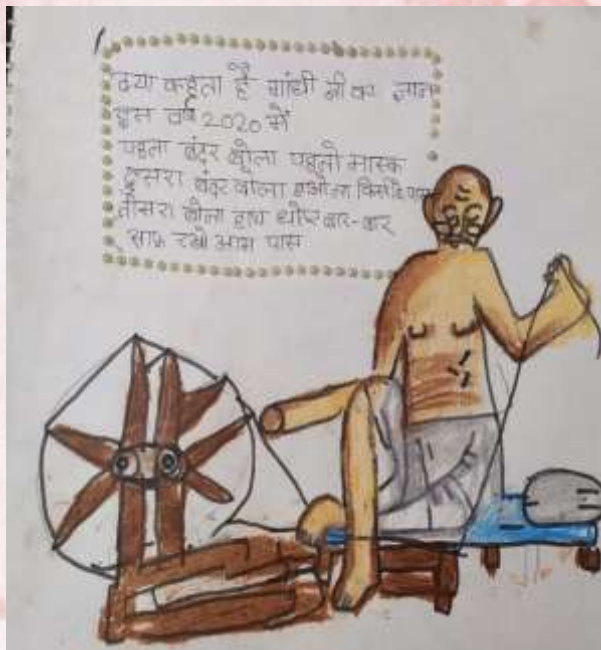 क्या कहता है गांधी जी का ज्ञान
इस वर्ष 2020 में
पहला बंदर बोला पहनो मास्क
दुसरा बंदर बोला जाओ ना किसी के पास
तीसरा बोला हाथ धोए बार-बार
साफ रखो आस पास